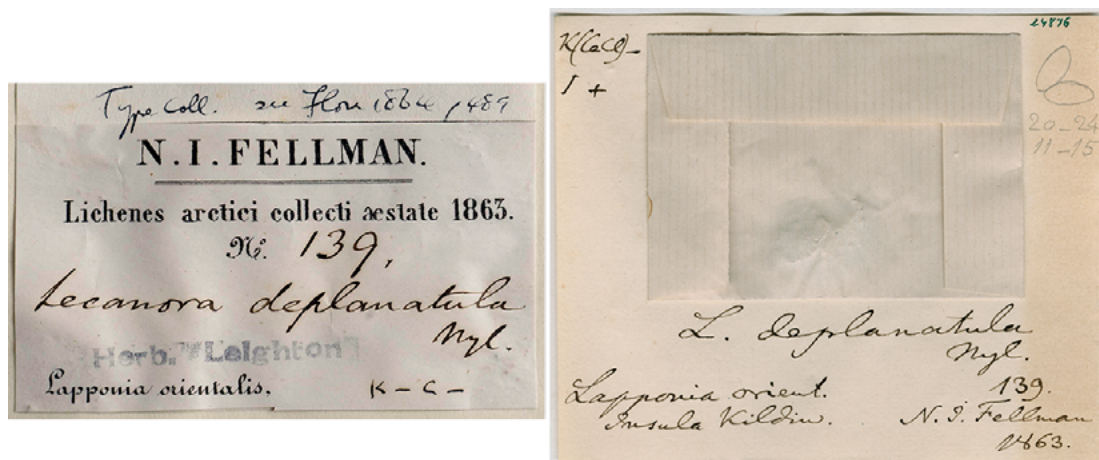 Type Coll. see Flora 1864, p489
N. I. FELLMAN.
Lichenes arctici collecti æstate 1863.
No. 139,
Lecanora deplanatula
Nyl.
Herb. "Leighton"
Lapponia orientalis. K – C –
24876
K(CaCl)–
I +
20–24
11–15
L. deplanatula
Nyl.
Lapponia orient. 139.
Insula Kildin. N. I. Fellman
1863.